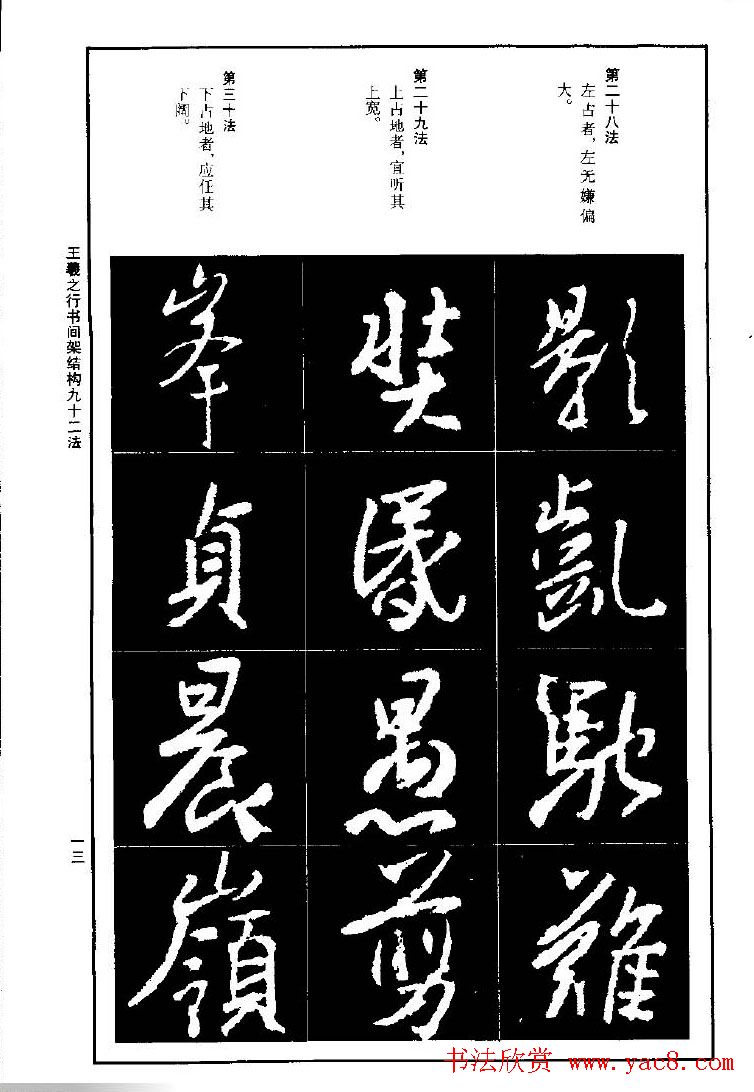 第二十八法
左占者，左无嫌偏
大。
影
凱
馳
難
第二十九法
上占地者，宜听其
上宽。
奘
愚
剪
第三十法
下占地者，应任其
下阔。
峯
貞
晨
嶺
王羲之行书间架结构九十二法
一三
书法欣赏 www.yac8.com